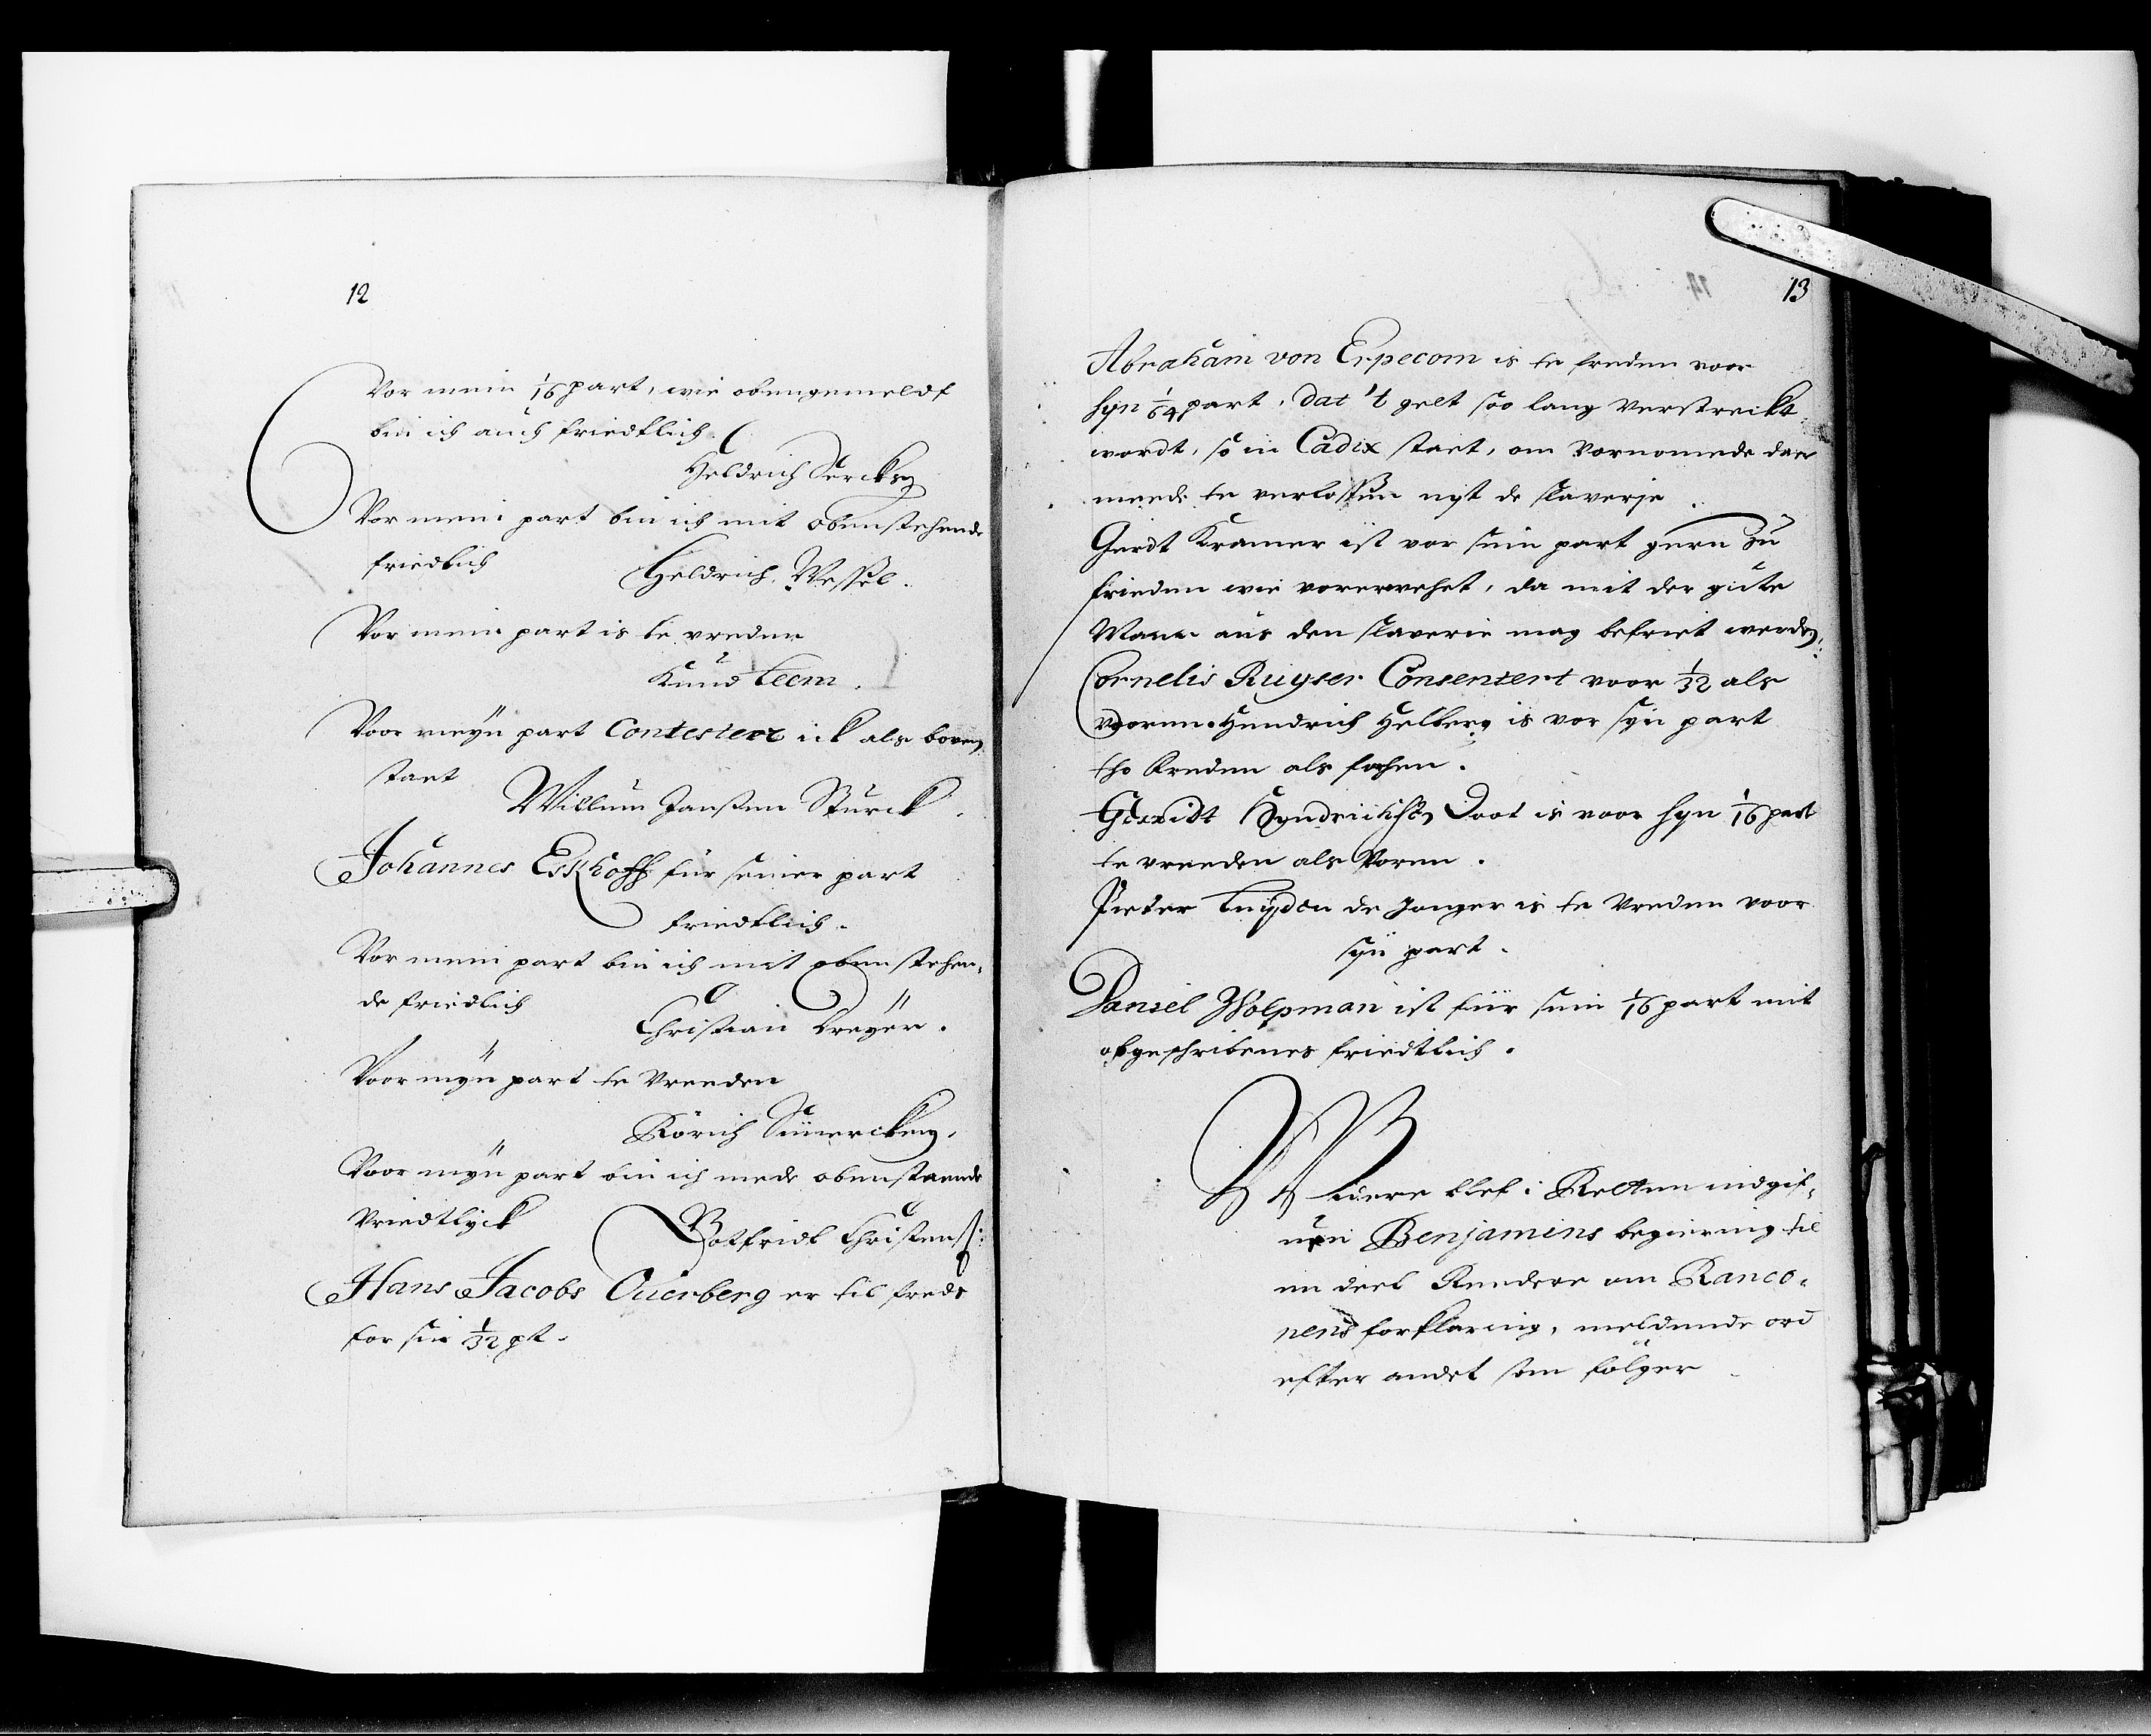 12
Vor mein 1/16 part, wie obengemeldt
bin ich auch friedtlich
Heldrich Sercksen
Vor mein part bin ich mit obenstehende
friedlich Heldrich Wessel.
Vor mein part is te vreden
Knud Leem.
Voor meyn part Contesteer ick als boven
staet
Willum Janssen Sturck.
Johannes Eskhoff für seiner part
friedtlich.
Vor mein part bin ich mit obenstehen,
de friedlich
Christian Dreyer.
Voor mÿn part te Vreeden
Rörich Sünercksen,
Voor mÿn part bin ich mede obenstaende
Vriedtlyck Gotfridt Christenss:
Hans Jacobs Ouerberg er til freds
for sin 1/32 pt.
13
Abraham von Erpecom is te freden voor
syn 1/64 part, dat 't gelt soo lang Verstreckt
wordt, so in Cadix staet, om Vornomede daer
meede te verlossen uyt de slaverje.
Gerdt Kramer ist vor sein part gern zu
frieden wie vorerwehet, da mit der gute
Mann aus den slaverie mag befriet werden.
Cornelis Ruyser Consentert voor 1/32 als
vooren. Hendrich Helberg is vor syn part
tho freden als forhen.
Gerridt Hyndrichsen Doot is voor syn 1/16 part
te vreeden als Voren.
Pieter Luyden de Jonger is te Vreden voor
syn part.
Daniel Wolpman ist für sein 1/16 part mit
obgeschribenes friedtlich.
Widere blef i Retten indgif,
uen Benjamins begiering til
en deel Reedere om Ranco,
nens forklaring, meldende ord
efter andet som fölger